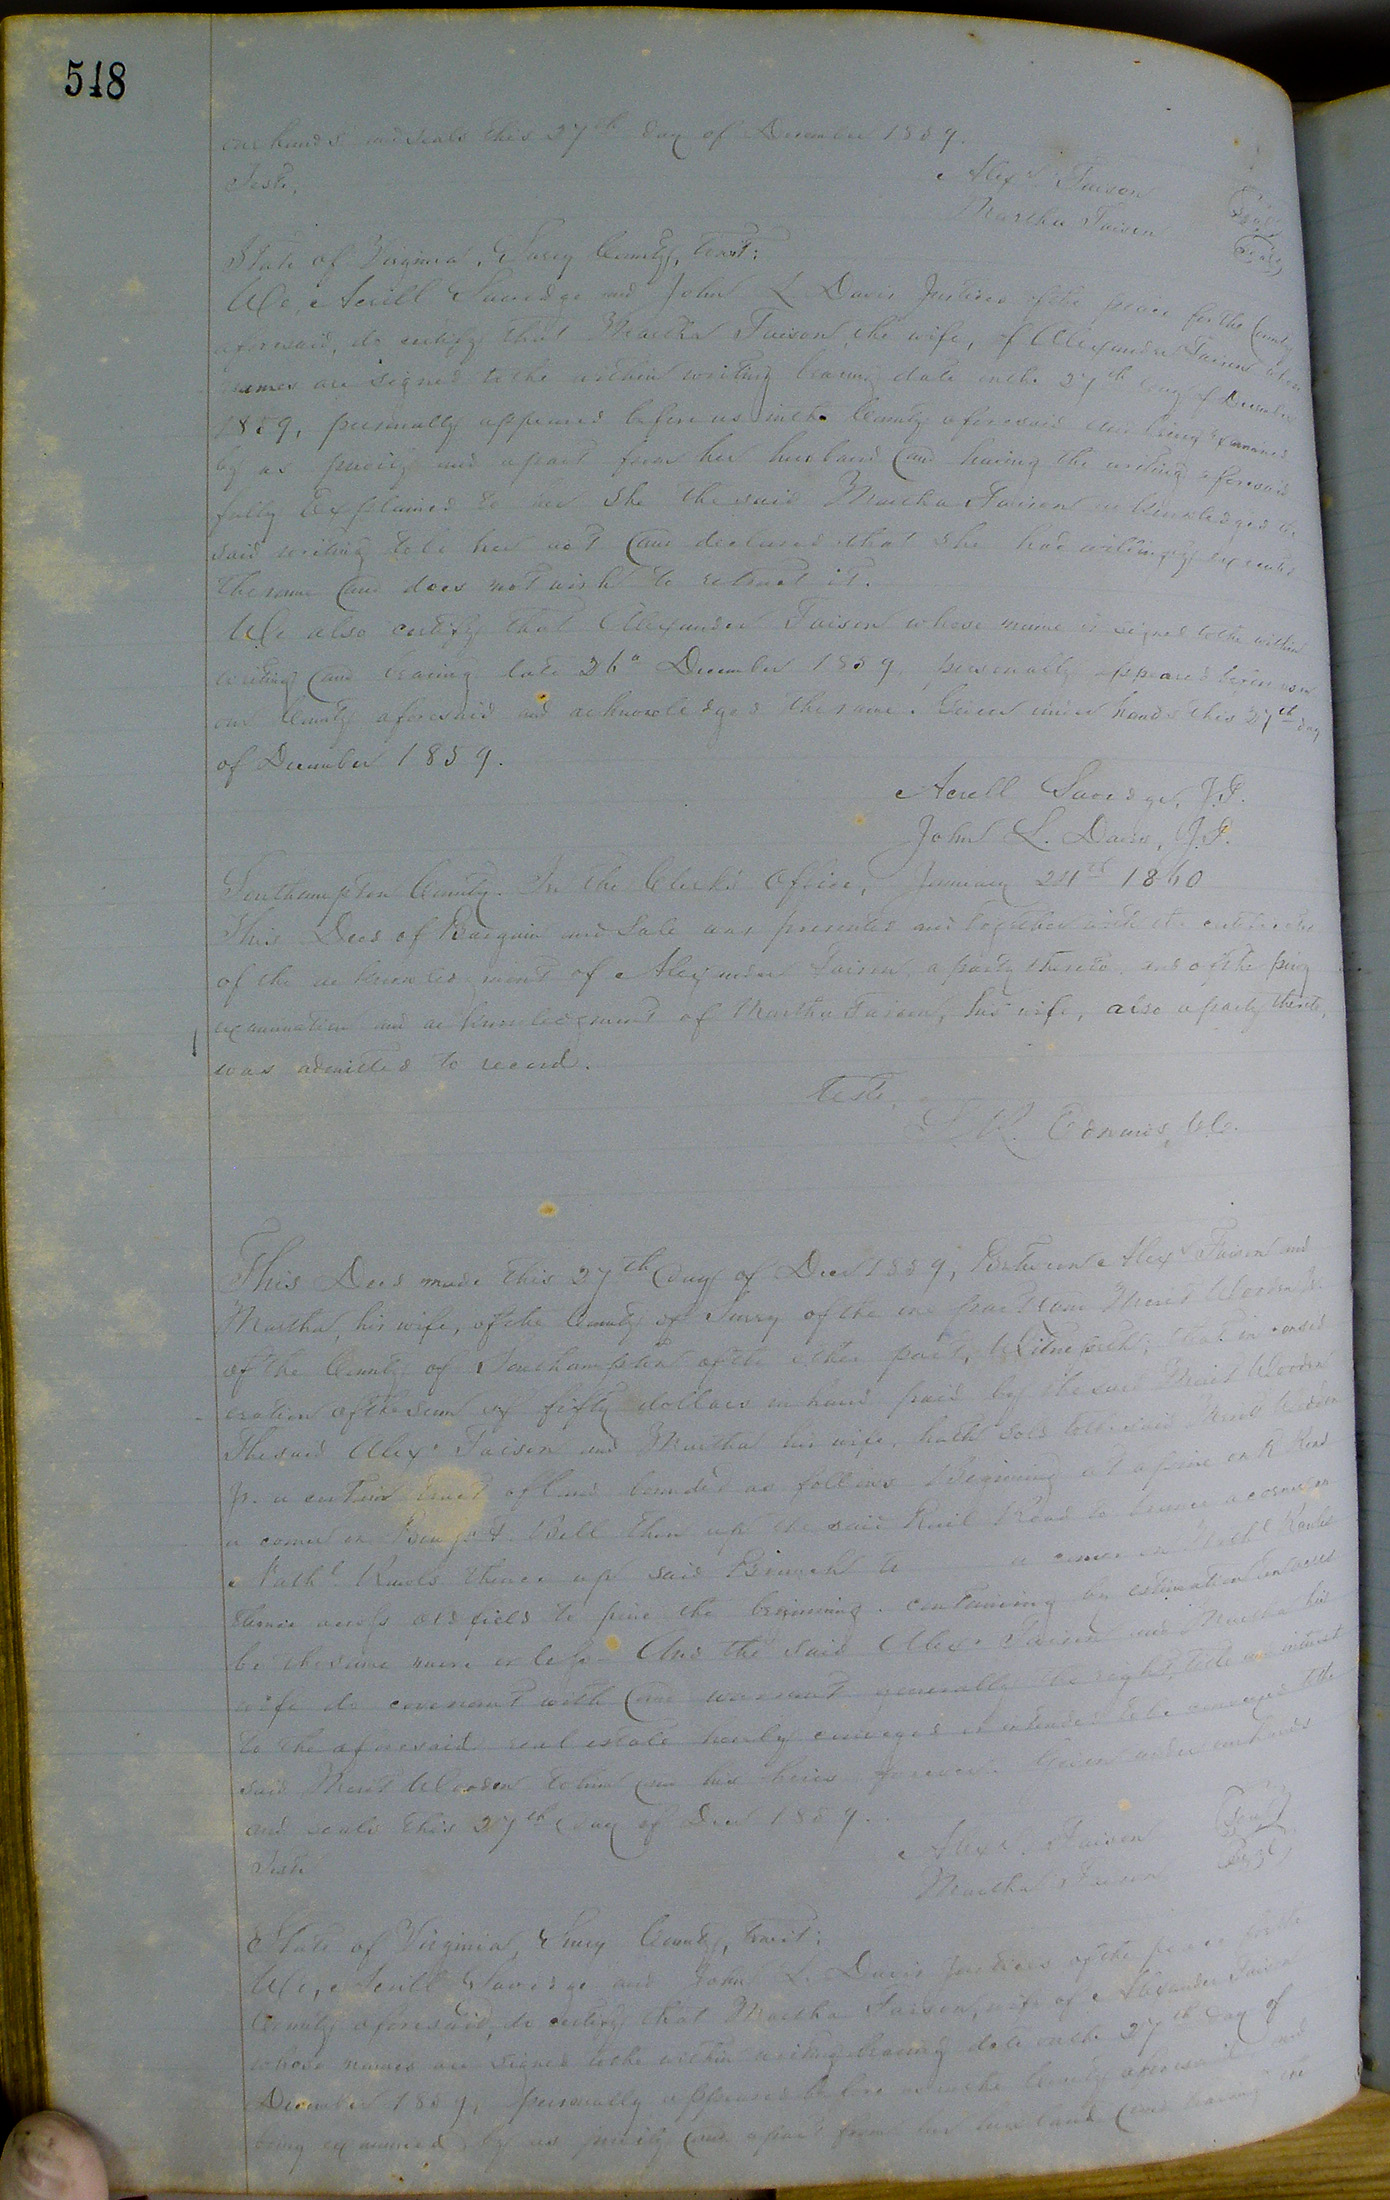 518
our hands and seals this 27th day of December 1859.
Teste,
Alexr. Faison (Seal)
Martha Faison (Seal)
State of Virginia, Surry County, to wit:
We, Acrill Savedge and John L Davis Justices of the peace for the County
aforesaid, do certify that Martha Faison, the wife, of Alexander Faison whose
names are signed to the within writing bearing date on the 27th day of December
1859, personally appeared before us in the County aforesaid and being examined
by us privily and apart from her husband and having the writing aforesaid
fully explained to her she the said Martha Faison acknowledged the
said writing to be her act and declared that she had willingly executed
the same and does not wish to retract it.
We also certify that Alexander Faison whose name is signed to the within
writing and bearing date 26" December 1859, personally appeared before us in
our County aforesaid and acknowledged the same. Given under hands this 27th day
of December 1859.
Acrill Savedge, J.P.
John L. Davis, J.P.
Southampton County. In the Clerk's Office, January 24th 1860
This Deed of Bargain and Sale was presented and together with the certificates
of the acknowledgment of Alexander Faison, a party thereto, and of the privy
examination and acknowledgment of Martha Faison, his wife, also a party thereto,
was admitted to record.
Teste,
L. R. Edwards, Clk.
This Deed made this 27th day of Decr 1859, Between Alexr Faison and
Martha, his wife, of the County of Surry of the one part and Merit Worden Jr.
of the County of Southampton of the other part, Witnesseth; that in consid
eration of the sum of fifty dollars in hand paid by the said Merit Worden
The said Alexr Faison and Martha his wife, hath sold to the said Merit Worden
Jr. a certain tract of land bounded as follows Beginning at a pine on R Road
a corner on Benj. F. Bell then up the said Rail Road to branch a corner on
Nathl. Rawls thence up said Branch to a corner on Nathl Rawls
thence across old field to pine the beginning. containing by estimation ten acres
be the same more or less. And the said Alexr Faison and Martha his
wife do covenant with and warrant generally the right, title and interest
to the aforesaid real estate hereby conveyed or intended to be conveyed to the
said Merit Worden to him and his heirs forever. Given under our hands
and seals this 27th day of Decr 1859.
Teste
Alexr. Faison (Seal)
Martha Faison (Seal)
State of Virginia, Surry County, to wit:
We, Acrill Savedge and John L. Davis Justices of the peace for the
County aforesaid, do certify that Martha Faison, wife of Alexander Faison
whose names are signed to the within writing bearing date on the 27th day of
December 1859, personally appeared before us in the County aforesaid and
being examined by us privily and apart from her husband and having the